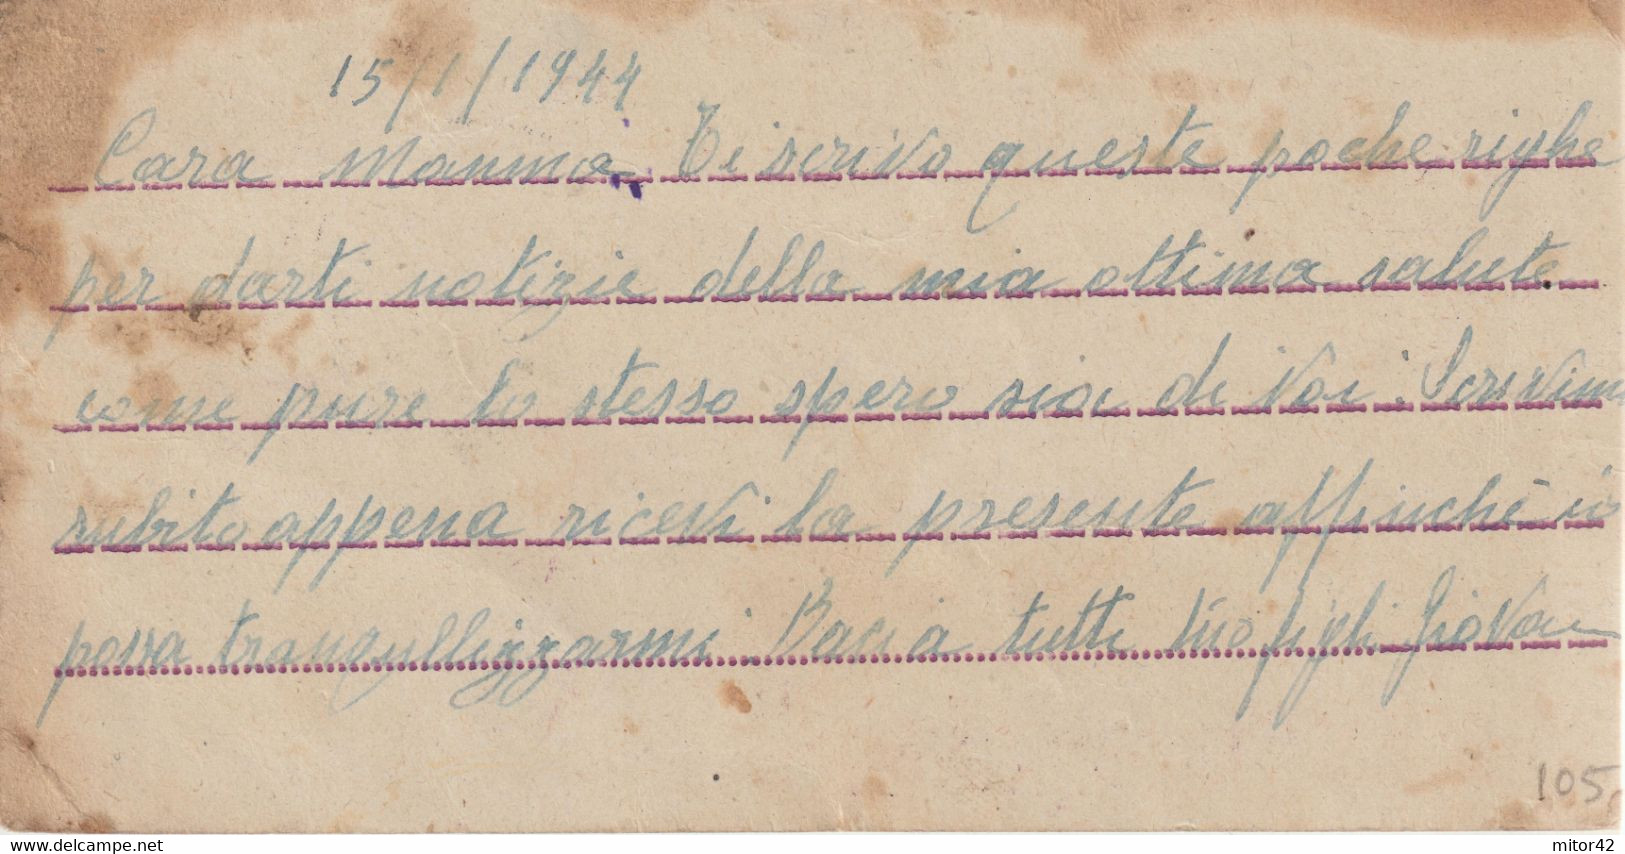 15/1/1944
Cara Mamma. Ti scrivo queste poche righe
per darti notizie della mia ottima salute
come pure lo stesso spero sia di voi. Scrivimi
subito appena ricevi la presente affinché io
possa tranquyllizzarmi. Baci a tutti tuo figli Giovan
105
delcampe.net
mitor42